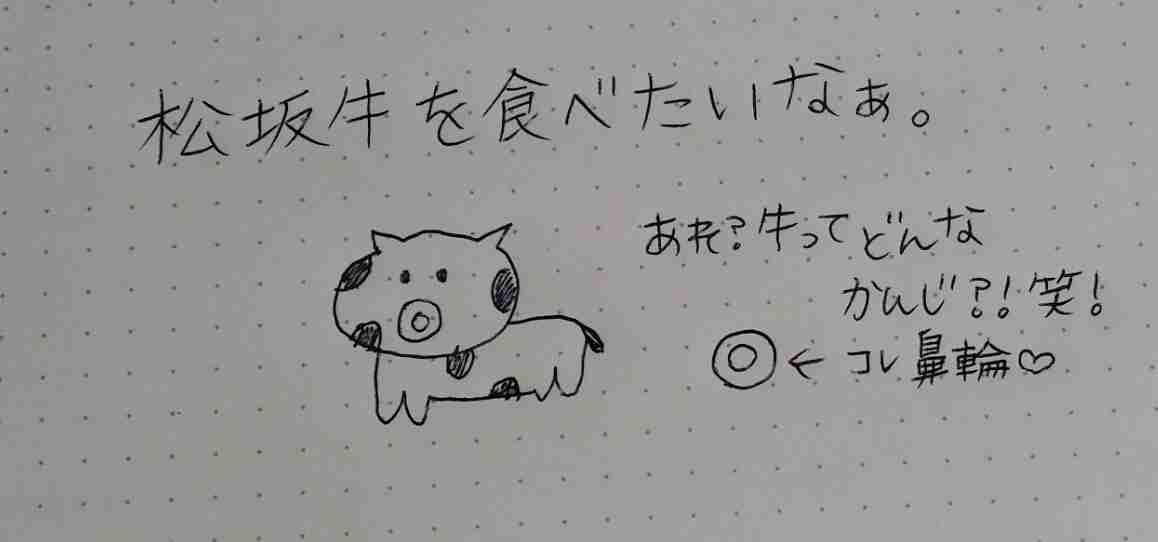 松坂牛を食べたいなぁ。
あれ?牛ってどんな
かんじ?!笑!
←コレ鼻輪♡